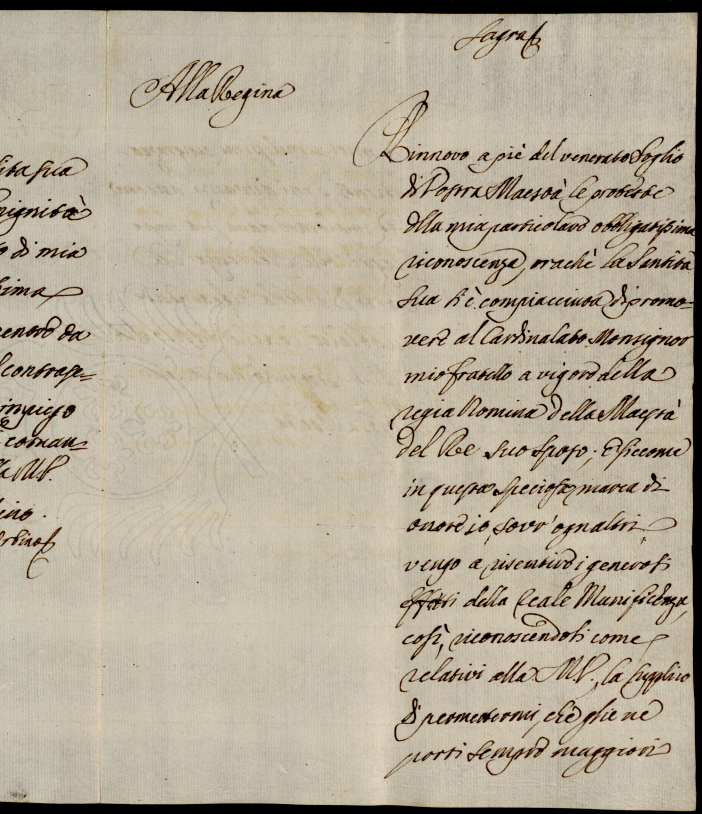 Sagra
Alla Regina
Rinnovo a piè del venerato Soglio
di Vostra Maestà le proteste
della mia particolare obbligatissima
riconoscenza, orachè la Santità
Sua si è compiacciuta di promo=
vere al Cardinalato Monsignor
mio fratello a vigore della
regia Nomina della Maestà
del Re suo sposo; E siccome
in questa speciosa marca di
onore io, sovr'ogn'altri
vengo a risentire i generosi
effetti della Reale Munificenza,
così, riconoscendoli come
relativi alla M.V., la supplico
di permettermi, che glie ne
porti sempre maggiori
nignità
o di mia
sima
enore da
l contrase=
impiego
coman=
la M.V.